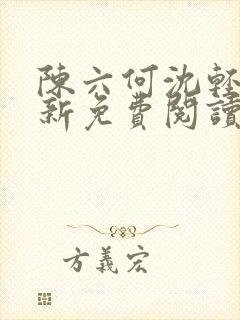 陳六何沈輕
新免費閱讀
方義宏